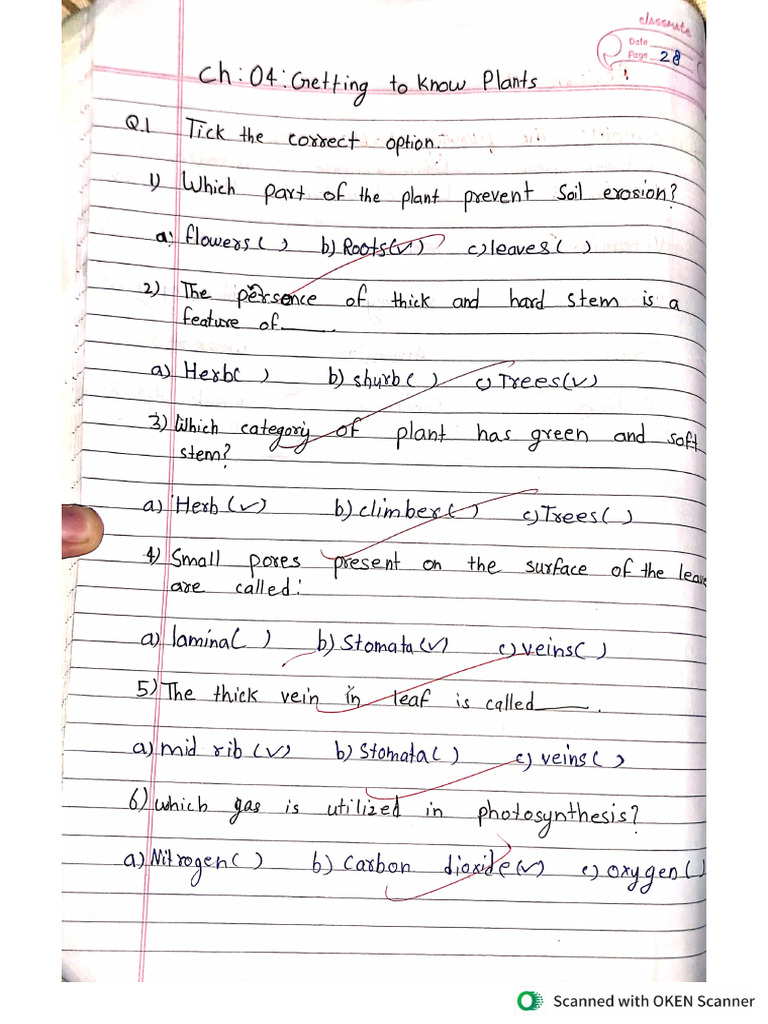 classmate
Date
Page 28
Ch: 04: Getting to Know Plants
Q.1 Tick the correct option.
1) Which part of the plant prevent Soil erosion?
a) flowers ( ) b) Roots (✓) c) leaves ( )
2) The persence of thick and hard stem is a
feature of ____.
a) Herb ( ) b) shurb ( ) c) Trees (✓)
3) Which category of plant has green and soft
stem?
a) Herb (✓) b) climber ( ) c) Trees ( )
4) Small pores present on the surface of the leave
are called:
a) lamina ( ) b) Stomata (✓) c) veins ( )
5) The thick vein in leaf is called ____.
a) mid rib (✓) b) Stomata ( ) c) veins ( )
6) which gas is utilized in photosynthesis?
a) Nitrogen ( ) b) Carbon dioxide (✓) c) oxygen ( )
Scanned with OKEN Scanner